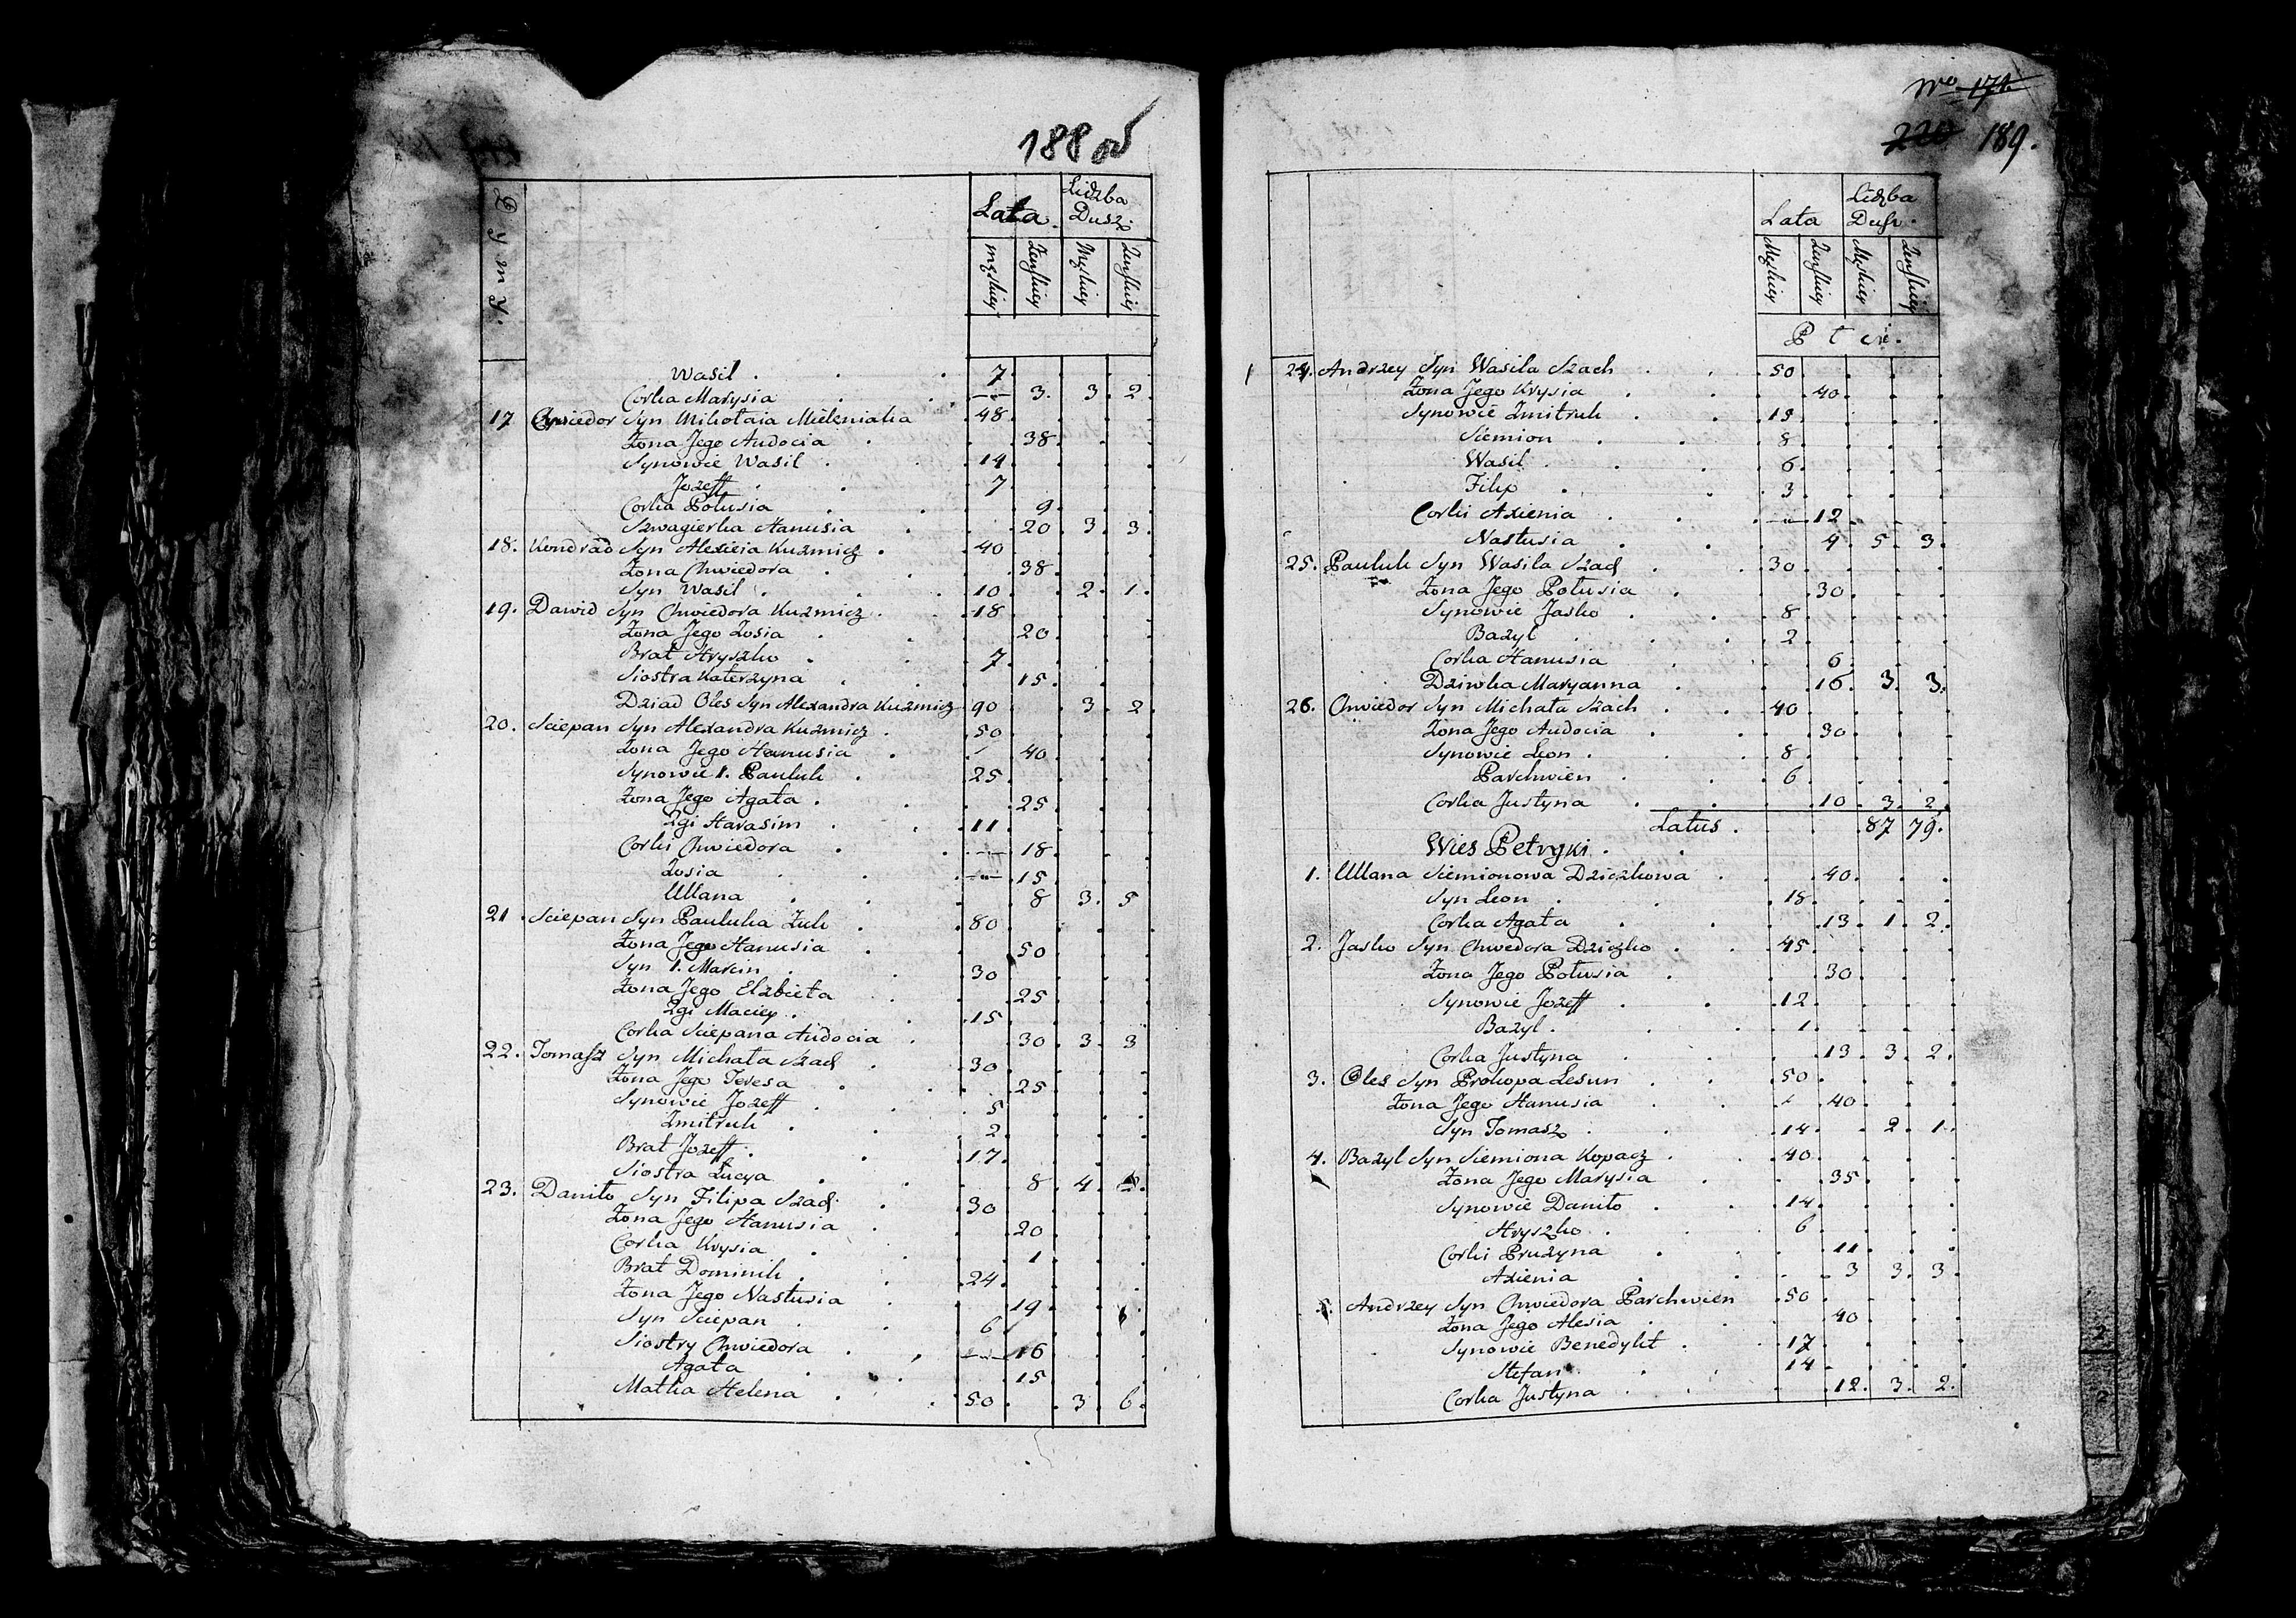 188 od
Dymy.
Lata. Liczba Dusz.
męskiey Żenskiey Męskiey Żenskiey
Wasil . 7
Corka Marysia . —„— 3. 3. 2.
17 Chwiedor Syn Mikołaia Mieleniaka 48.
Żona Jego Audocia . 38.
Synowie Wasil . 14.
Jozeff . 7.
Corka Połusia . 9.
Szwagierka Hanusia . 20. 3. 3.
18. Kondrad Syn Alexieia Kuzmicz . 40
Żona Chwiedora . 38.
Syn Wasil . 10. 2. 1.
19. Dawid Syn Chwiedora Kuzmicz . 18
Żona Jego Zosia . 20.
Brat Hryszko . 7.
Siostra Katerzyna . 15.
Dziad Oles Syn Alexandra Kuzmicz 90 . 3. 2.
20. Sciepan Syn Alexandra Kuzmicz . 50
Żona Jego Hanusia . 40.
Synowie 1. Pauluk . 25
Żona Jego Agata . 25.
2gi Harasim . 11.
Corki Chwiedora . —„— 18.
Zosia . —„— 15.
Ullana . 8 3. 5
21. Sciepan Syn Pauluka Zuk . 80
Żona Jego Hanusia . 50
Syn 1. Marcin . 30
Żona Jego Elzbieta . 25.
2gi Maciey . 15
Corka Sciepana Audocia . 30. 3. 3
22. Tomasz Syn Michała Szach . 30
Żona Jego Teresa . 25.
Synowie Jozeff . 5
Zmitruk . 2.
Brat Jozeff . 17.
Siostra Łucya . 8. 4. 2.
23. Daniło Syn Filipa Szach . 30
Żona Jego Hanusia . 20
Corka Krysia . 1.
Brat Dominik . 24.
Żona Jego Nastusia . 19.
Syn Sciepan . 6
Siostry Chwiedora . —„— 16
Agata . 15
Matka Helena . 50 . 3. 6.
Nro 171.
220 189.
Lata Liczba Dusz.
Męskiey Żenskiey Męskiey Żenskiey
Płci.
24. Andrzey Syn Wasila Szach . 50
Żona Jego Krysia . 40.
Synowie Zmitruk . 15.
Siemion . 8.
Wasil . 6.
Filip . 3.
Corki Axienia . —„— 12.
Nastusia . 4. 5. 3.
25. Pauluk Syn Wasila Szach . 30.
Żona Jego Połusia . 30.
Synowie Jasko . 8.
Bazyl . 2.
Corka Hanusia . 6.
Dziwka Maryanna . 16. 3. 3.
26. Chwiedor Syn Michała Szach . 40
Żona Jego Audocia . 30.
Synowie Leon . 8.
Parchwien . 6.
Corka Justyna . 10. 3. 2.
Latus . 87 79.
Wies Petryki .
1. Ullana Siemionowa Dziczkowa . 40.
Syn Leon . 18.
Corka Agata . 13. 1. 2.
2. Jasko Syn Chwedora Dziczko . 45.
Żona Jego Połusia . 30.
Synowie Jozeff . 12.
Bazyl . 1.
Corka Justyna . 13. 3. 2.
3. Oles Syn Prokopa Lesun . 50.
Żona Jego Hanusia . 40.
Syn Tomasz . 14. 2. 1.
4. Bazyl Syn Siemiona Kopacz . 40.
Żona Jego Marysia . 35.
Synowie Daniło . 14.
Hryszko . 6
Corki Pruzyna . 11.
Axienia . 3 3. 3.
5. Andrzey Syn Chwiedora Parchwien 50.
Żona Jego Alesia . 40
Synowie Benedykt . 17
Stefan . 14
Corka Justyna . 12. 3. 2.